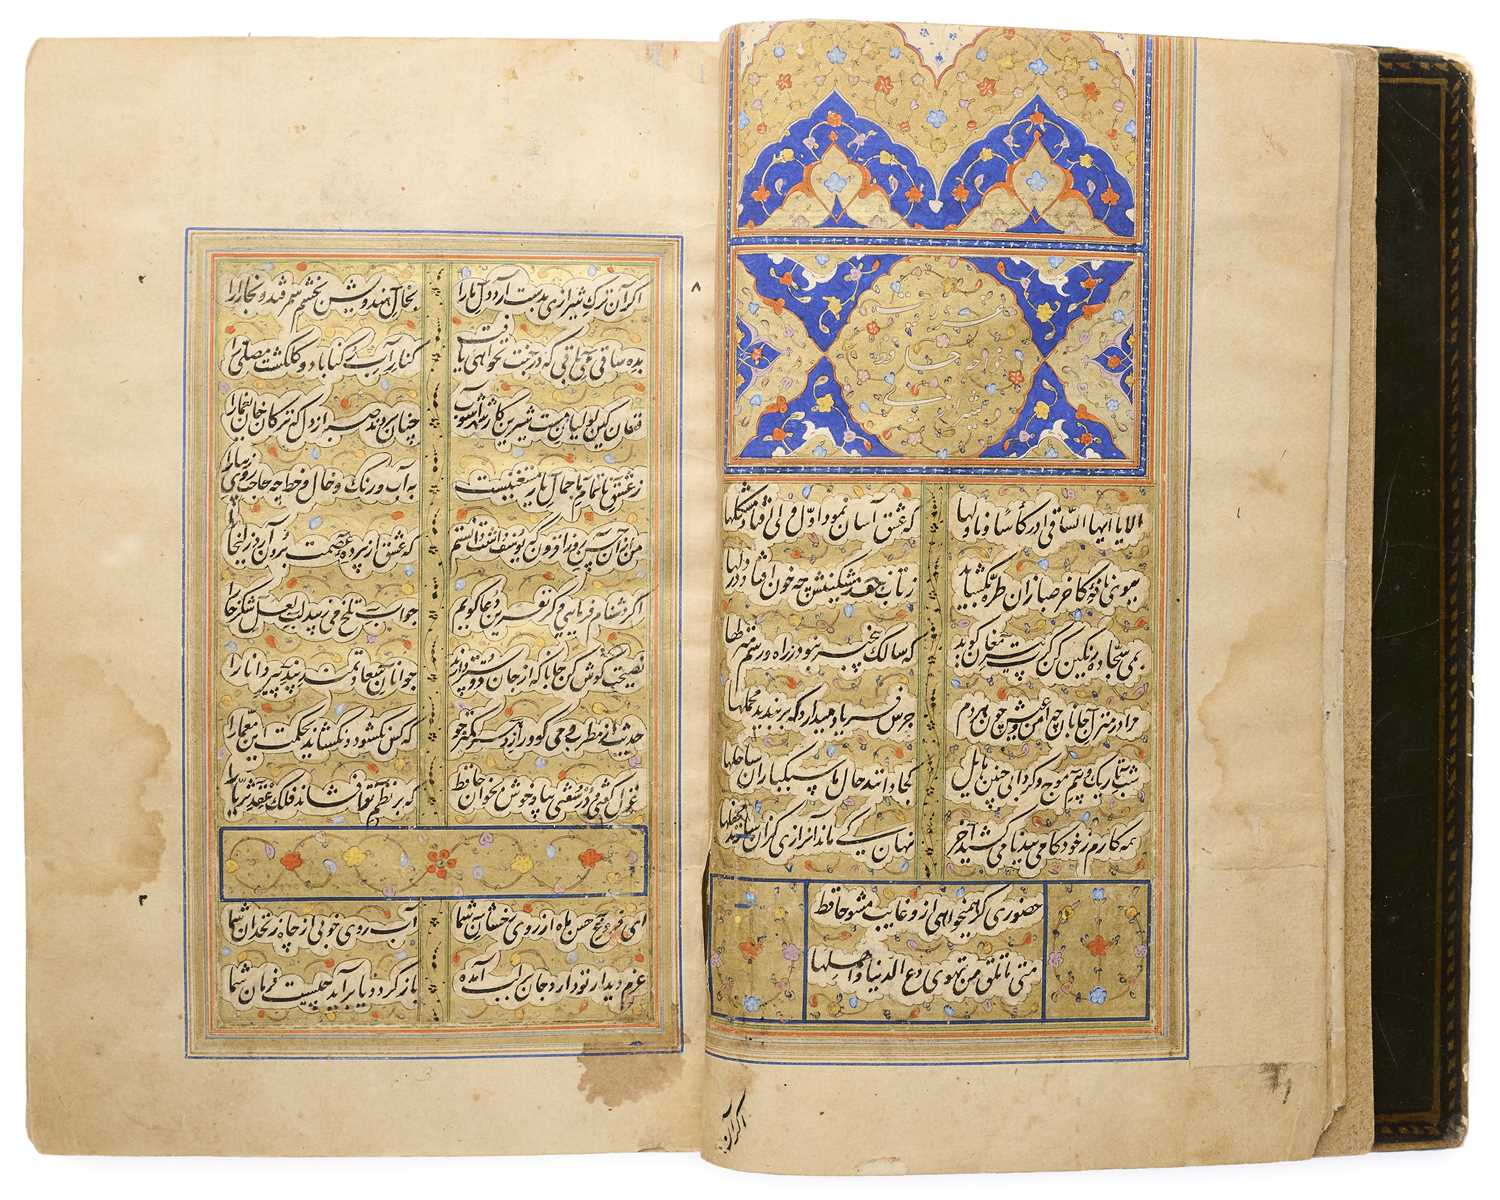 الا یا ایها الساقی ادر کأسا و ناولها که عشق آسان نمود اول ولی افتاد مشکلها
ببوی نافه کاخر صبا زان طره بگشاید ز تاب جعد مشکینش چه خون افتاد در دلها
بمی سجاده رنگین کن گرت پیر مغان گوید که سالک بیخبر نبود ز راه و رسم منزلها
مرا در منزل جانان چه امن و عیش چون هر دم جرس فریاد میدارد که بربندید محملها
شب تاریک و بیم موج و گردابی چنین هایل کجا دانند حال ما سبکباران ساحلها
همه کارم ز خود کامی ببدنامی کشید آخر نهان کی ماند آن رازی کزان سازند محفلها
حضوری گر همیخواهی ازو غایب مشو حافظ
متی ما تلق من تهوی دع الدنیا و اهملها
اگر آن
اگر آن ترک شیرازی بدست آرد دل ما را بخال هندویش بخشم سمرقند و بخارا را
بده ساقی می باقی که در جنت نخواهی یافت کنار آب رکناباد و گلگشت مصلی را
فغان کین لولیان مست شیرین کار شهرآشوب چنان بردند صبر از دل که ترکان خوان یغما را
ز عشق ناتمام ما جمال یار مستغنیست به آب و رنگ و خال و خط چه حاجت روی زیبا را
من از آن حسن روز افزون که یوسف داشت دانستم که عشق از پرده عصمت برون آرد زلیخا را
اگر دشنام فرمایی و گر نفرین دعا گویم جواب تلخ می زیبد لب لعل شکرخا را
نصیحت گوش کن جانا که از جان دوستر دارند جوانان سعادتمند پند پیر دانا را
حدیث از مطرب و می گو و راز دهر کمتر جو که کس نگشود و نگشاید بحکمت این معما را
غزل گفتی و در سفتی بیا و خوش بخوان حافظ که بر نظم تو افشاند فلک عقد ثریا را
ای فروغ حسن ماه از روی رخشان شما آب روی خوبی از چاه زنخدان شما
عزم دیدار تو دارد جان بر لب آمده باز گردد یا برآید چیست فرمان شما